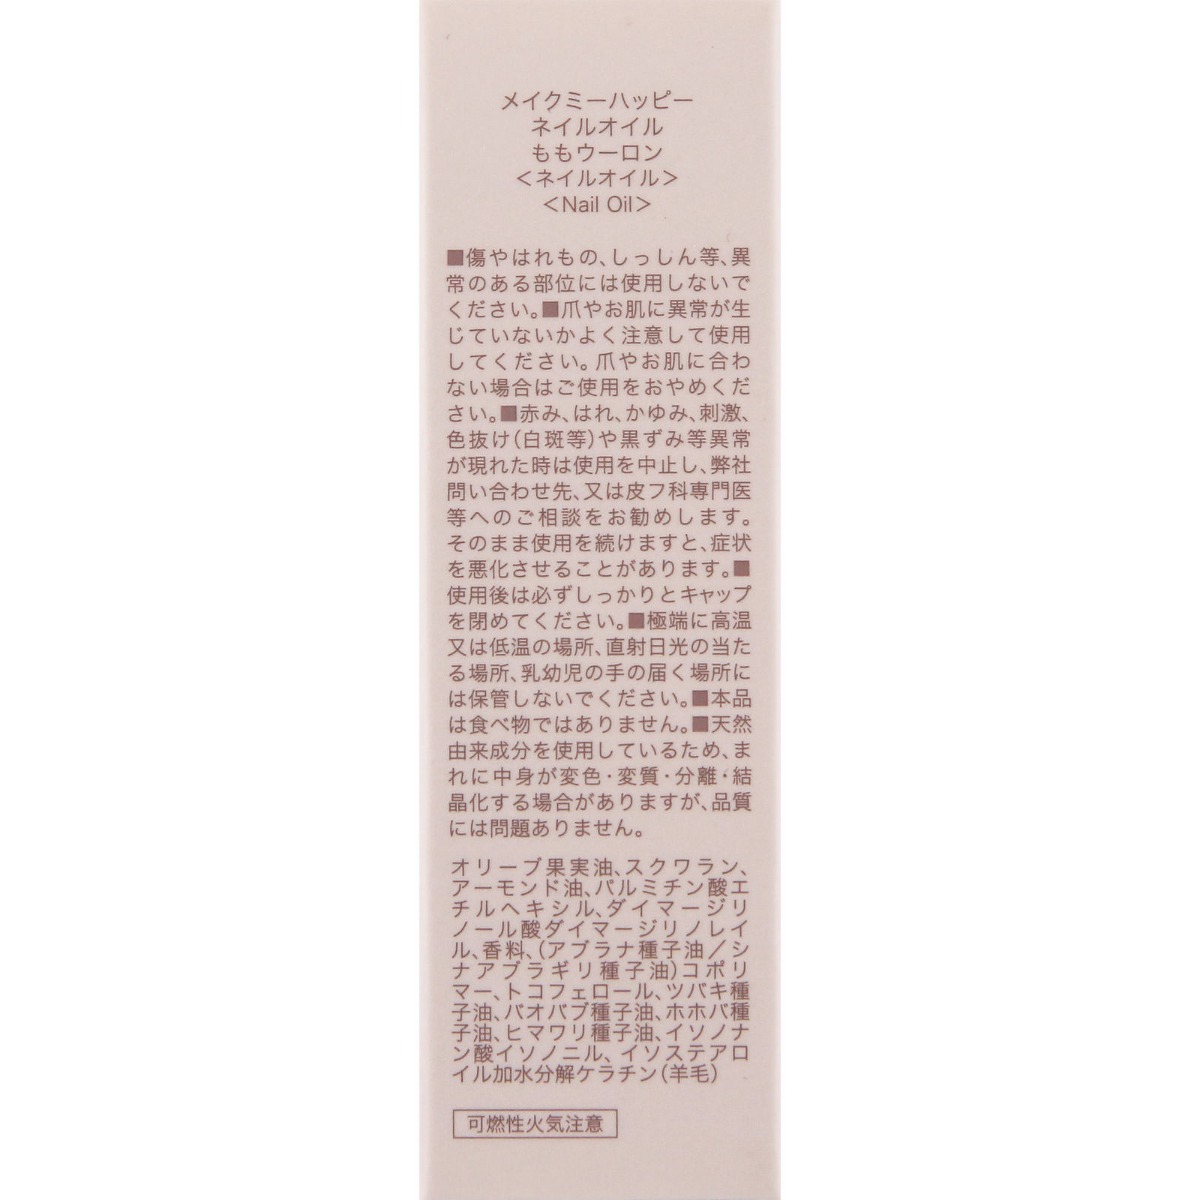 メイクミーハッピー
ネイルオイル
ももウーロン
＜ネイルオイル＞
＜Nail Oil＞
■傷やはれもの、しっしん等、異
常のある部位には使用しないで
ください。■爪やお肌に異常が生
じていないかよく注意して使用
してください。爪やお肌に合わ
ない場合はご使用をおやめくだ
さい。■赤み、はれ、かゆみ、刺激、
色抜け(白斑等)や黒ずみ等異常
が現れた時は使用を中止し、弊社
問い合わせ先、又は皮フ科専門医
等へのご相談をお勧めします。
そのまま使用を続けますと、症状
を悪化させることがあります。■
使用後は必ずしっかりとキャップ
を閉めてください。■極端に高温
又は低温の場所、直射日光の当た
る場所、乳幼児の手の届く場所に
は保管しないでください。■本品
は食べ物ではありません。■天然
由来成分を使用しているため、ま
れに中身が変色・変質・分離・結
晶化する場合がありますが、品質
には問題ありません。
オリーブ果実油、スクワラン、
アーモンド油、パルミチン酸エ
チルヘキシル、ダイマージリ
ノール酸ダイマージリノレイ
ル、香料、(アブラナ種子油／シ
ナアブラギリ種子油)コポリ
マー、トコフェロール、ツバキ種
子油、バオバブ種子油、ホホバ種
子油、ヒマワリ種子油、イソノナ
ン酸イソノニル、イソステアロ
イル加水分解ケラチン(羊毛)
可燃性火気注意